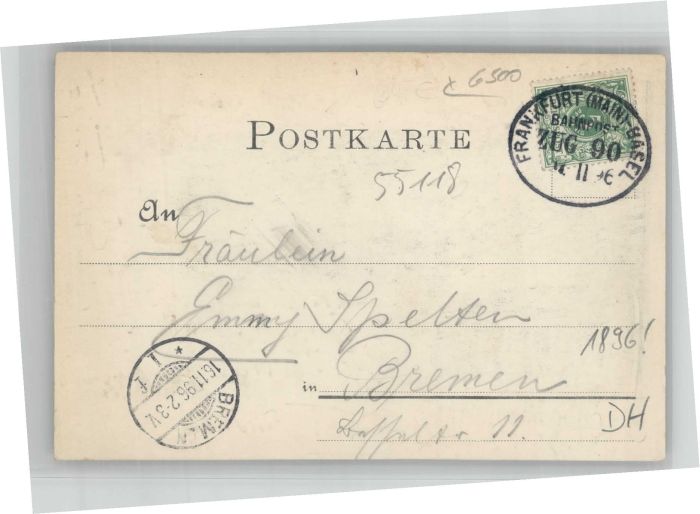 x 6500
POSTKARTE
FRANKFURT (MAIN) BASEL
BAHNPOST
ZUG 90
11 96
55118
An
Fräulein
Emmy Spelten
1896!
in Bremen
11.
DH
BREMEN
16.11.96.2-3V.
* 1